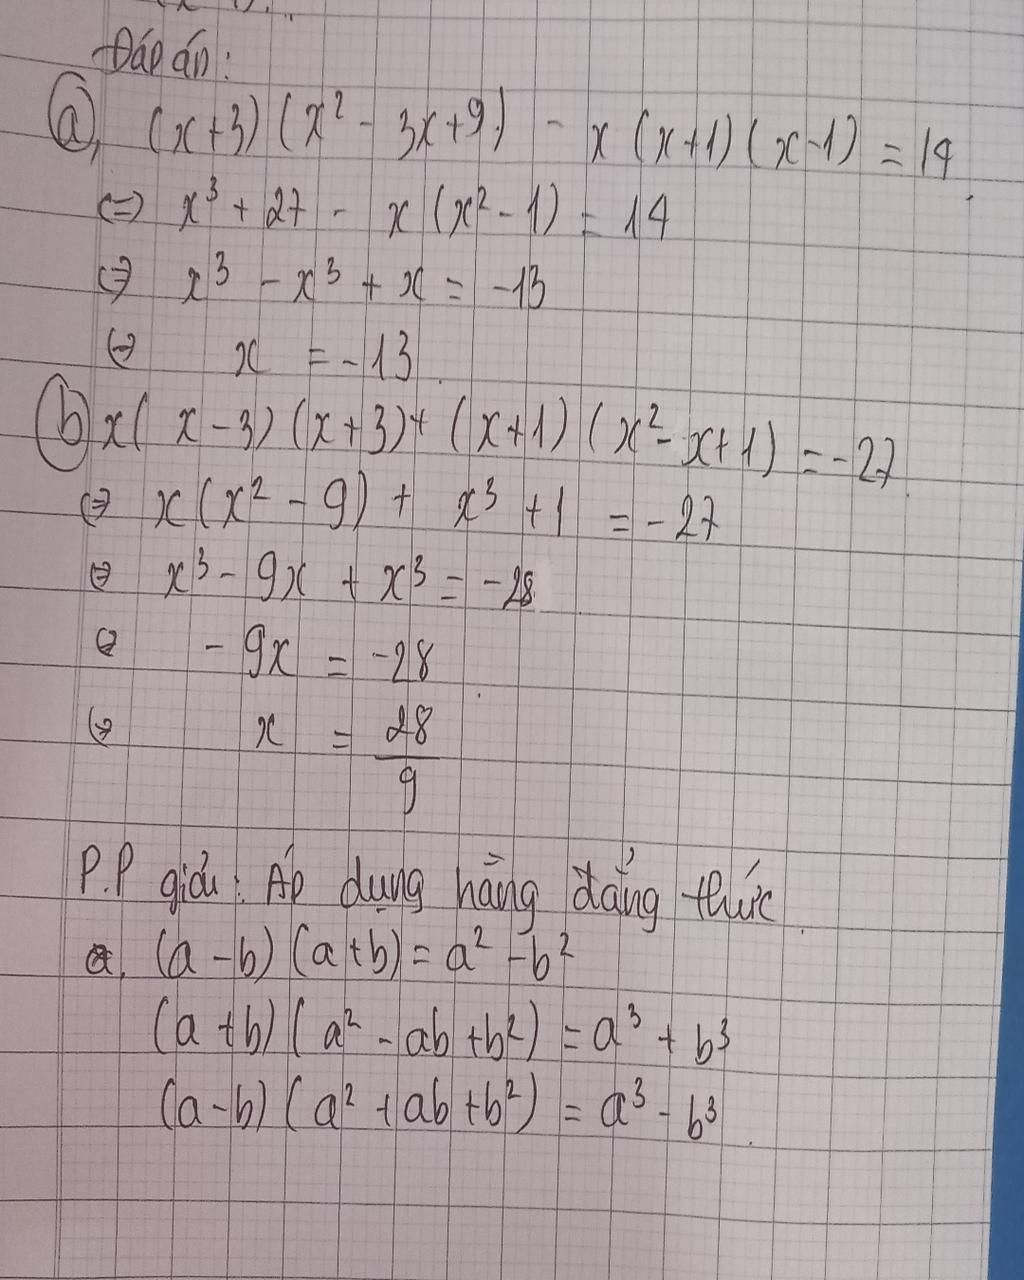 Đáp án:
a, (x+3)(x² - 3x+9) - x(x+1)(x-1) = 14
<=> x³ + 27 - x(x² - 1) = 14
<=> x³ - x³ + x = -13
<=> x = -13
b) x(x-3)(x+3)+(x+1)(x²-x+1) = -27
<=> x(x² - 9) + x³ + 1 = -27
<=> x³ - 9x + x³ = -28
<=> - 9x = -28
<=> x = 28/9
P.P giải: Áp dụng hằng đẳng thức
a, (a-b)(a+b) = a² - b²
(a+b)(a² - ab + b²) = a³ + b³
(a-b)(a² + ab + b²) = a³ - b³